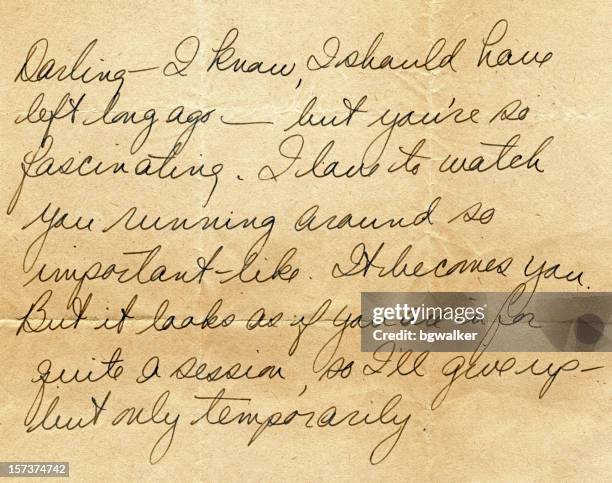 Darling — I know, I should have
left long ago — but you're so
fascinating. I love to watch
you running around so
important-like. It becomes you.
But it looks as if you are in for
quite a session, so I'll give up —
but only temporarily.
gettyimages
Credit: bgwalker
157374742